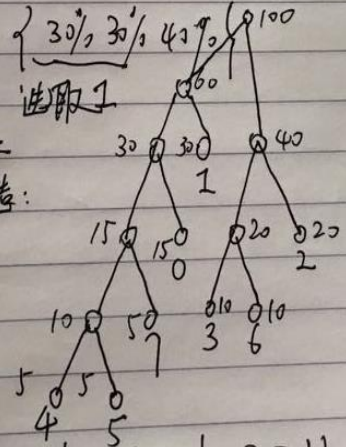 { 30% 30% 40% 100
选取 1 60
30 30 40
1
15 15 20 20
0 2
10 5 10 10
7 3 6
5 5
4 5